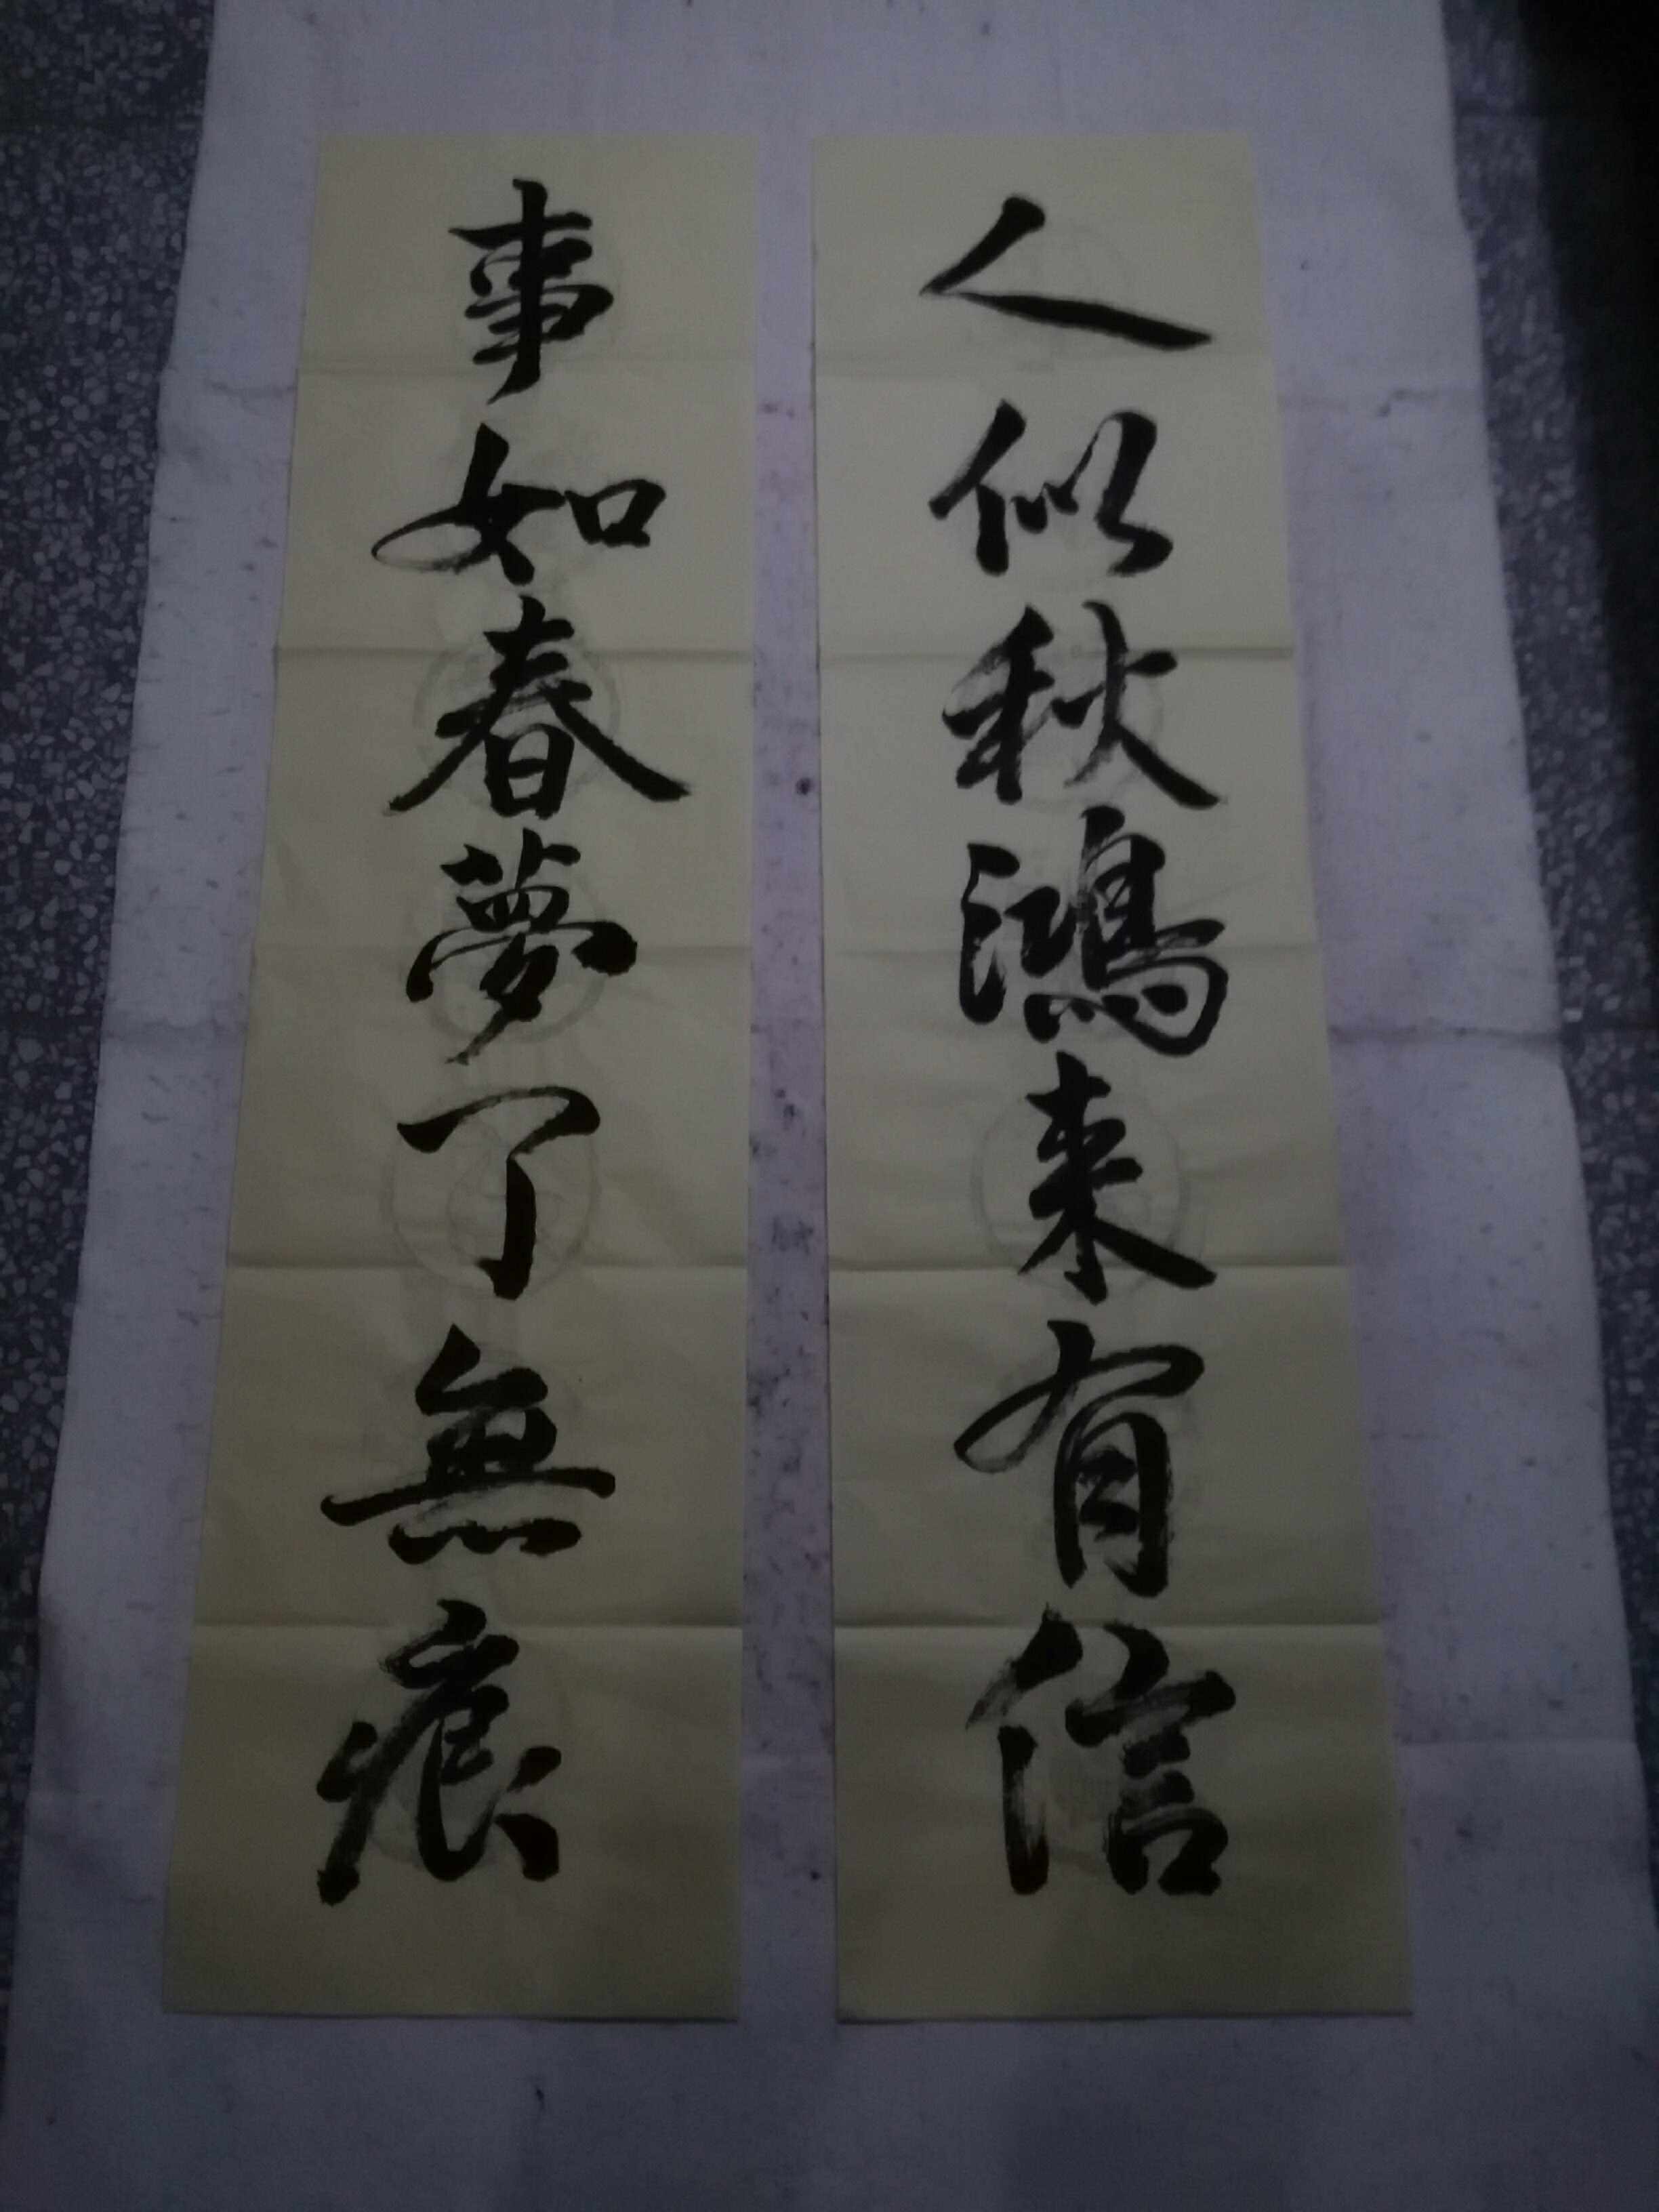 人似秋鴻来有信
事如春夢了無痕